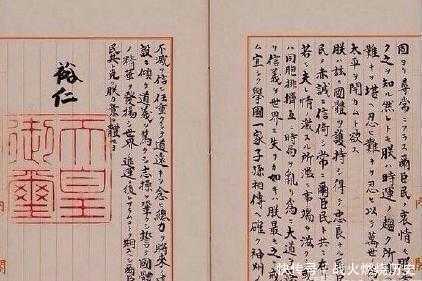 固ヨリ尋常ニアラス爾臣民ノ衷情
ク之ヲ知ル然レトモ朕ハ時運ノ趨ク所
難キヲ堪ヘ忍ヒ難キヲ忍ヒ以テ萬世
太平ヲ開カムト欲ス
朕ハ茲ニ國體ヲ護持シ得テ忠良ナル
民ノ赤誠ニ信倚シ常ニ爾臣民ト共ニ在
若シ夫レ情ノ激スル所濫ニ事端ヲ滋ク
ハ同胞排擠互ニ時局ヲ亂リ爲ニ大道
リ信義ヲ世界ニ失フカ如キハ朕最モ之
ム宜シク擧國一家子孫相傳ヘ確ク神州ノ
不滅ヲ信シ任重クシテ道遠キヲ念ヒ總力ヲ將來ノ
設ニ傾ケ道義ヲ篤クシ志操ヲ鞏クシ誓テ國體
ノ精華ヲ發揚シ世界ノ進運ニ後レサラムコトヲ期スヘシ爾臣
民其レ克ク朕カ意ヲ體セヨ
裕仁
天皇
御璽
快传号 / 战火燃烧历史